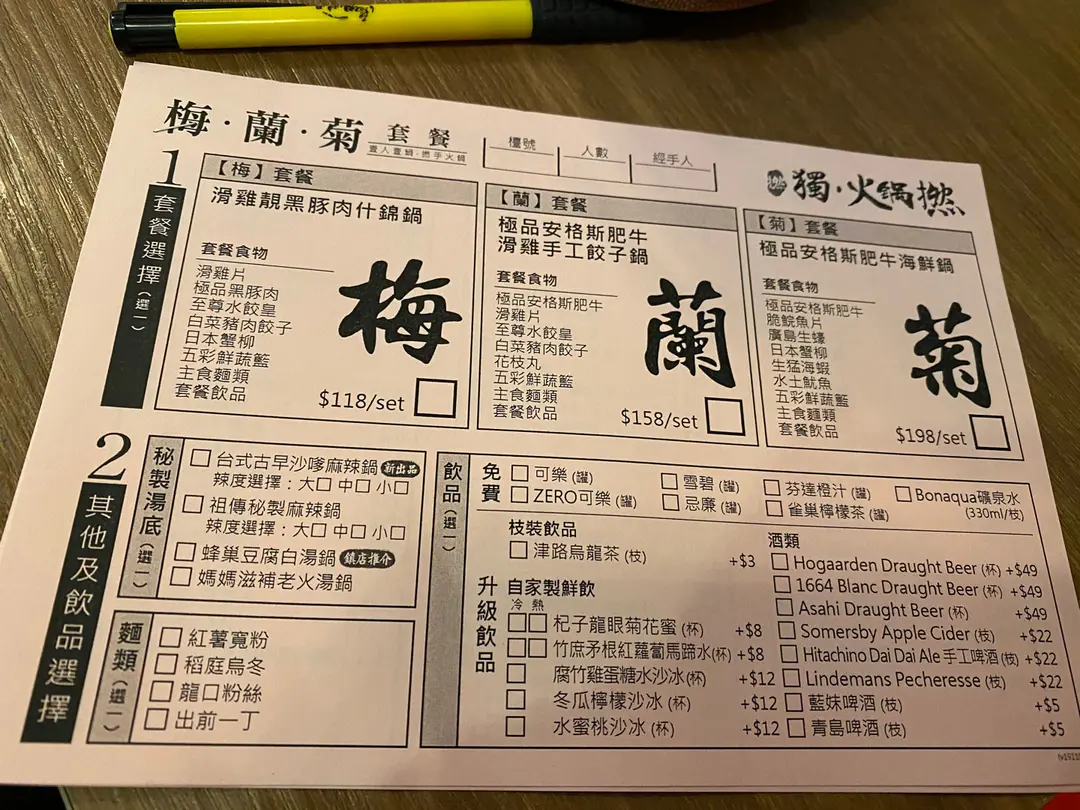 梅·蘭·菊 套餐
壹人壹鍋·撚手火鍋
檯號
人數
經手人
獨·火鍋撚
1
套餐選擇（選一）
【梅】套餐
滑雞靚黑豚肉什錦鍋
套餐食物
滑雞片
極品黑豚肉
至尊水餃皇
白菜豬肉餃子
日本蟹柳
五彩鮮蔬籃
主食麵類
套餐飲品
梅
$118/set
【蘭】套餐
極品安格斯肥牛
滑雞手工餃子鍋
套餐食物
極品安格斯肥牛
滑雞片
至尊水餃皇
白菜豬肉餃子
花枝丸
五彩鮮蔬籃
主食麵類
套餐飲品
蘭
$158/set
【菊】套餐
極品安格斯肥牛海鮮鍋
套餐食物
極品安格斯肥牛
脆鯇魚片
廣島生蠔
日本蟹柳
生猛海蝦
水土魷魚
五彩鮮蔬籃
主食麵類
套餐飲品
菊
$198/set
2
其他及飲品選擇
秘製湯底（選一）
台式古早沙嗲麻辣鍋 新出品
辣度選擇：大□ 中□ 小□
祖傳秘製麻辣鍋
辣度選擇：大□ 中□ 小□
蜂巢豆腐白湯鍋 鎮店推介
媽媽滋補老火湯鍋
麵類（選一）
紅薯寬粉
稻庭烏冬
龍口粉絲
出前一丁
飲品（選一）
免費
可樂 (罐)
雪碧 (罐)
芬達橙汁 (罐)
Bonaqua礦泉水
(330ml/枝)
ZERO可樂 (罐)
忌廉 (罐)
雀巢檸檬茶 (罐)
升級飲品
枝裝飲品
津路烏龍茶 (枝) +$3
自家製鮮飲
冷 熱
杞子龍眼菊花蜜 (杯) +$8
竹庶矛根紅蘿蔔馬蹄水(杯) +$8
腐竹雞蛋糖水沙冰(杯) +$12
冬瓜檸檬沙冰 (杯) +$12
水蜜桃沙冰 (杯) +$12
酒類
Hogaarden Draught Beer (杯) +$49
1664 Blanc Draught Beer (杯) +$49
Asahi Draught Beer (杯) +$49
Somersby Apple Cider (枝) +$22
Hitachino Dai Dai Ale 手工啤酒 (枝) +$22
Lindemans Pecheresse (枝) +$22
藍妹啤酒 (枝) +$5
青島啤酒 (枝) +$5